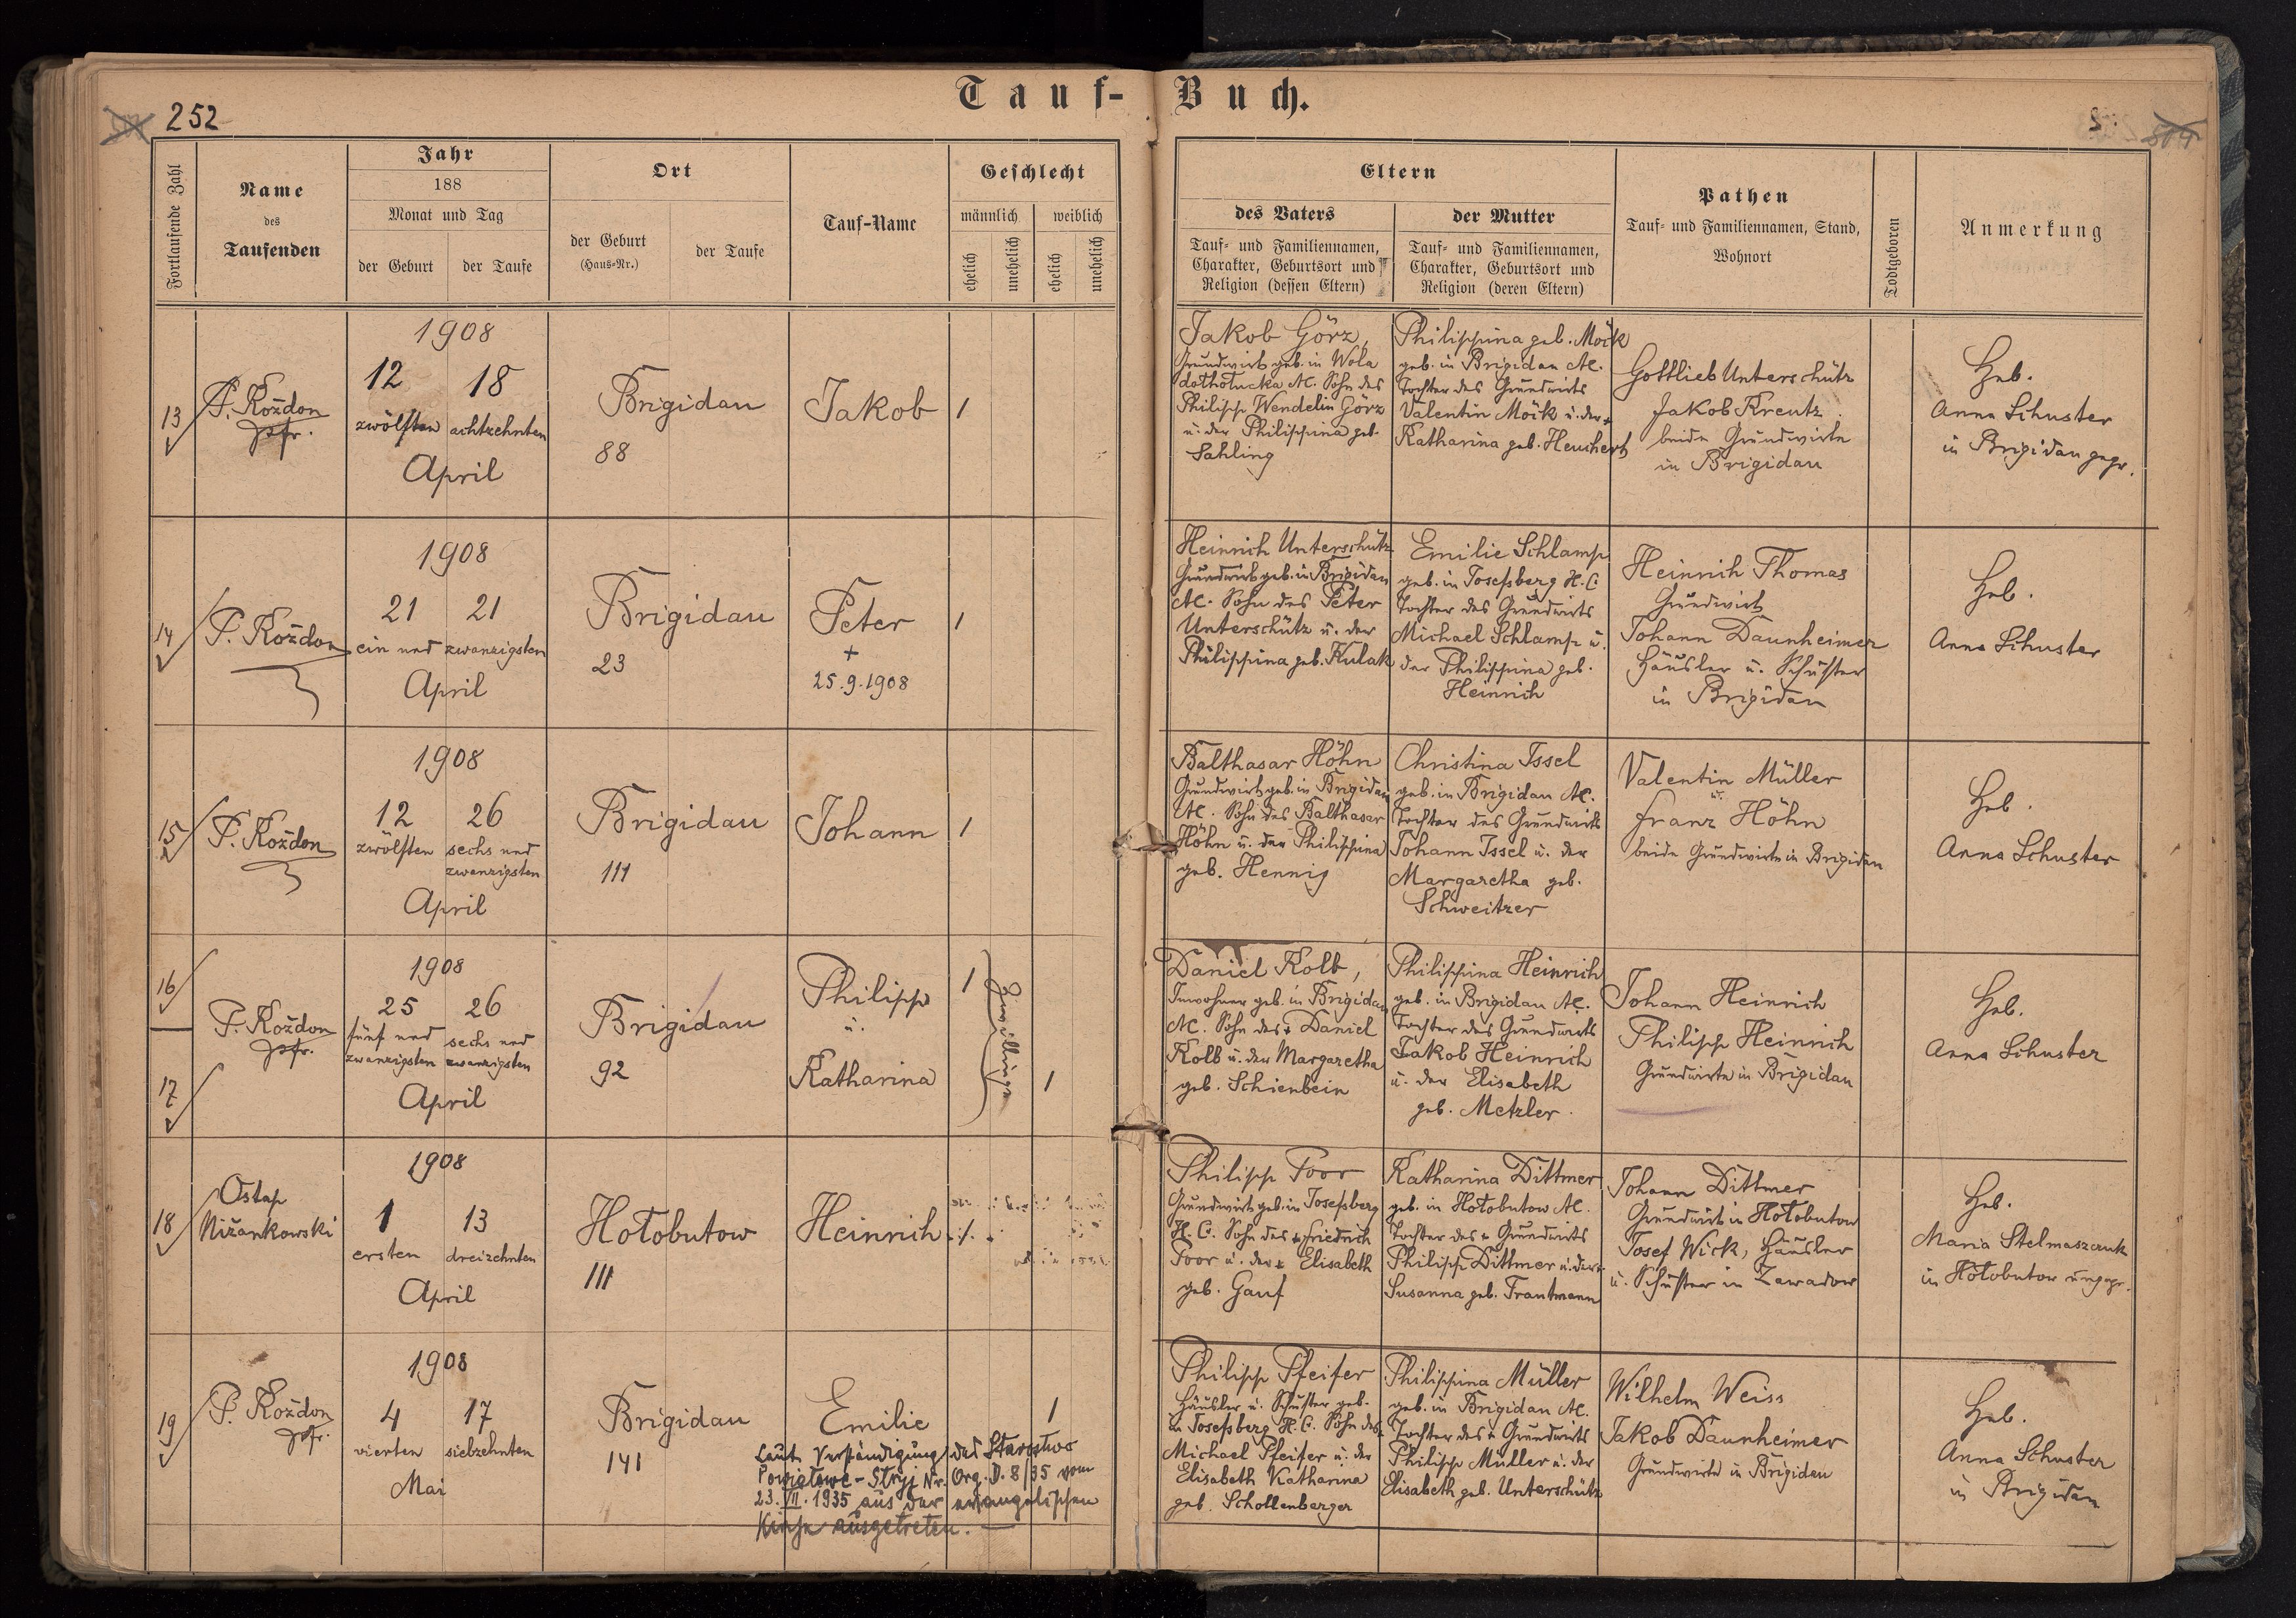 Tauf-Buch.
252
504
Fortlaufende Zahl
Name
des
Taufenden
Jahr
188
Monat und Tag
der Geburt
der Taufe
Ort
der Geburt
(Haus-Nr.)
der Taufe
Tauf-Name
Geschlecht
männlich
weiblich
ehelich
unehelich
ehelich
unehelich
Eltern
des Vaters
Tauf- und Familiennamen,
Charakter, Geburtsort und
Religion (dessen Eltern)
der Mutter
Tauf- und Familiennamen,
Charakter, Geburtsort und
Religion (deren Eltern)
Pathen
Tauf- und Familiennamen, Stand,
Wohnort
Todtgeboren
Anmerkung
13
P. Kożdon
pfr.
1908
12 18
zwölften achtzehnten
April
Brigidau
88
Jakob
1
Jakob Görz,
Grundwirt geb. in Wola
dołhołucka AC. Sohn des
Philipp Wendelin Görz
u. der Philippina geb.
Sahling
Philippina geb. Möck
geb. in Brigidau AC.
Tochter des Grundwirts
Valentin Möck u. der +
Katharina geb. Heuchert
Gottlieb Unterschütz
Jakob Kreutz
beide Grundwirte
in Brigidau
Heb.
Anna Schuster
in Brigidau gepr.
14
P. Kożdon
1908
21 21
ein und zwanzigsten
April
Brigidau
23
Peter
+
25.9.1908
1
Heinrich Unterschütz
Grundwirt geb. in Brigidau
AC. Sohn des Peter
Unterschütz u. der
Philippina geb. Kulak
Emilie Schlamp
geb. in Josefsberg H.C.
Tochter des Grundwirts
Michael Schlamp u.
der Philippina geb.
Heinrich
Heinrich Thomas
Grundwirt
Johann Daunheimer
Häusler u. Schuster
in Brigidau
Heb.
Anna Schuster
15
P. Kożdon
1908
12 26
zwölften sechs und
zwanzigsten
April
Brigidau
111
Johann
1
Balthasar Höhn
Grundwirt geb. in Brigidau
AC. Sohn des Balthasar
Höhn u. der Philippina
geb. Hennig
Christina Issel
geb. in Brigidau AC.
Tochter des Grundwirts
Johann Issel u. der
Margaretha geb.
Schweitzer
Valentin Müller
u.
Franz Höhn
beide Grundwirte in Brigidau
Heb.
Anna Schuster
16
17
P. Kożdon
pfr.
1908
25 26
fünf und sechs und
zwanzigsten zwanzigsten
April
Brigidau
92
Philipp
u.
Katharina
1
Zwillinge
1
Daniel Kolb,
Inwohner geb. in Brigidau
AC. Sohn des + Daniel
Kolb u. der Margaretha
geb. Schienbein
Philippina Heinrich
geb. in Brigidau AC.
Tochter des Grundwirts
Jakob Heinrich
u. der Elisabeth
geb. Metzler.
Johann Heinrich
Philipp Heinrich
Grundwirte in Brigidau
Heb.
Anna Schuster
18
Ostap
Niżankowski
1908
1 13
ersten dreizehnten
April
Hołobutow
111
Heinrich
1
Philipp Poor
Grundwirt geb. in Josefsberg
H.C. Sohn des + Friedrich
Poor u. der + Elisabeth
geb. Gauf
Katharina Dittmer
geb. in Hołobutow AC.
Tochter des + Grundwirts
Philipp Dittmer u. der +
Susanna geb. Trautmann
Johann Dittmer
Grundwirt in Hołobutow
Josef Wick, Häusler
u. Schuster in Zawadow
Heb.
Maria Stelmaszczuk
in Hołobutow ungepr.
19
P. Kożdon
pfr.
1908
4 17
vierten siebzehnten
Mai
Brigidau
141
Emilie
1
Laut Verständigung des Starostwo
Powiatowe - Stryj Nr. Org. D. 8/35 vom
23.VII.1935 aus der evangelischen
Kirche ausgetreten. —
Philipp Pfeifer
Häusler u. Schuster geb.
in Josefsberg H.C. Sohn des
Michael Pfeifer u. der
Elisabeth Katharina
geb. Schollenberger
Philippina Müller
geb. in Brigidau AC.
Tochter des + Grundwirts
Philipp Müller u. der
Elisabeth geb. Unterschütz
Wilhelm Weiss
Jakob Daunheimer
Grundwirte in Brigidau
Heb.
Anna Schuster
in Brigidau